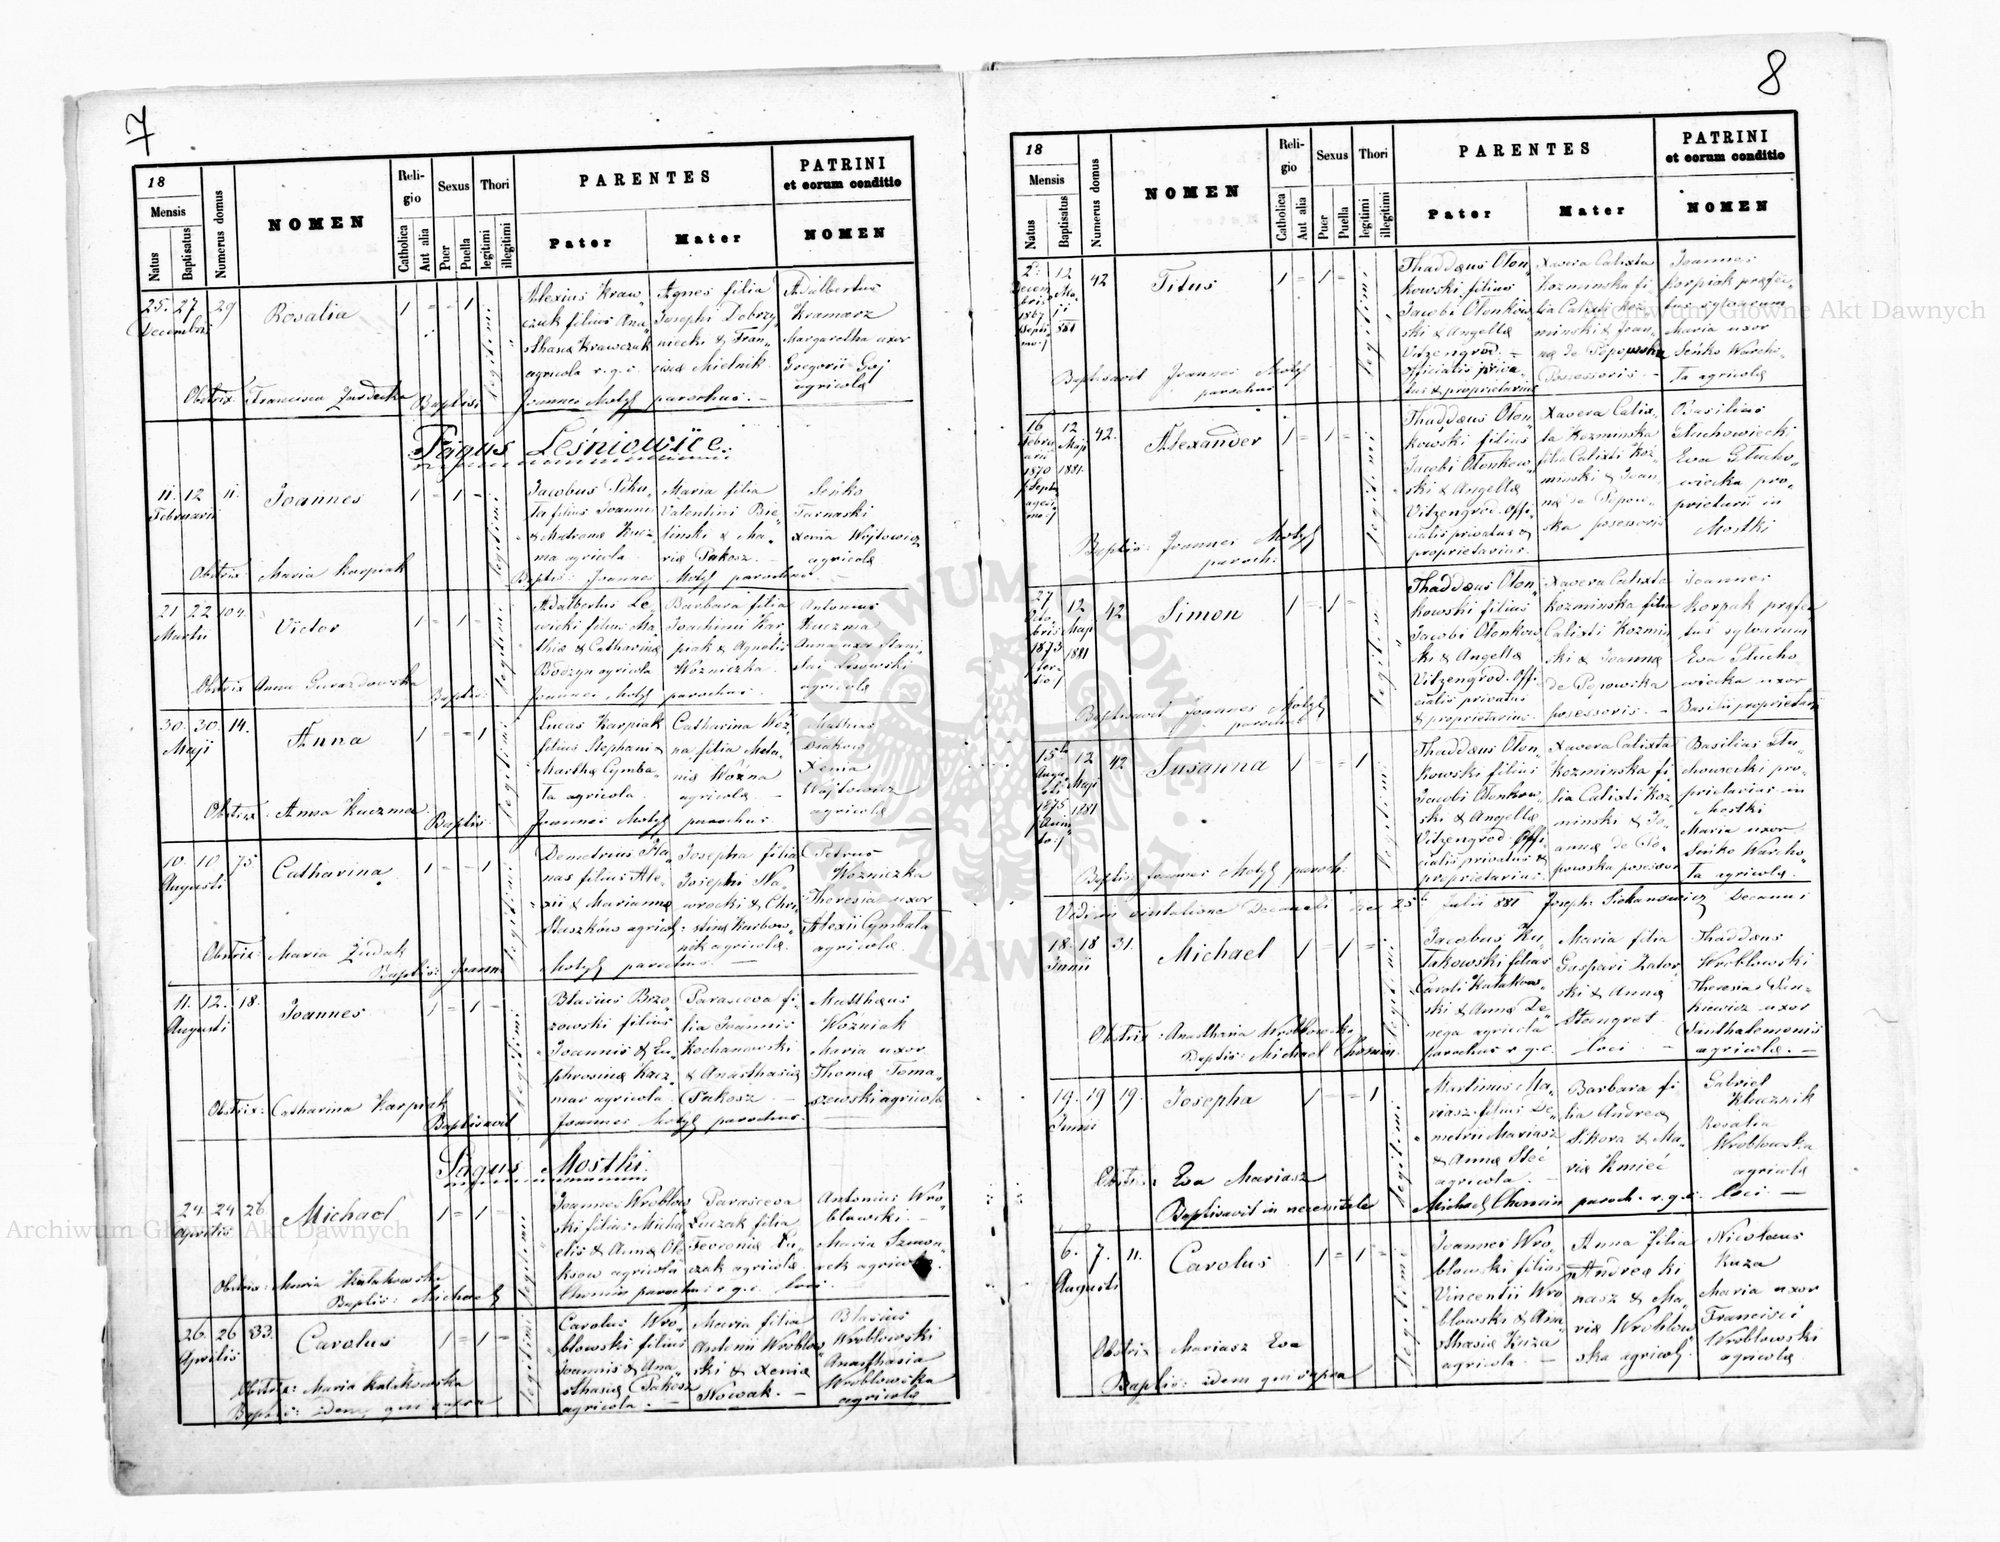 7
18
Mensis
Natus
Baptisatus
Numerus domus
NOMEN
Religio
Catholica
Aut alia
Sexus
Puer
Puella
Thori
legitimi
illegitimi
PARENTES
Pater
Mater
PATRINI
et eorum conditio
NOMEN
25. 27 29 Rosalia 1 = - 1 Legitimi
Decembris
Alexius Kraw„
czuk filius Ana„
sthasiæ Krawczuk
agricola r. g. c.
Agnes filia
Josephi Dobrzy„
niecki & Fran„
ciscæ Mielnik
Adalbertus
Kramarz
Margaretha uxor
Gregorii Goj
agricolæ
Obstrix Francisca
Baptis: Joannes Motyl parochus. —
Pagus Leśniowice.
11. 12 11. Joannes 1 - 1 - Legitimi
Februarii
Jacobus
ta filius Joannis
& Matronæ Kucz„
ma agricola
Maria filia
Valentini Bie„
linski & Ma„
riæ Pakosz. —
Seńko
Tarnaski
Xenia Wójtowicz
agricolæ
Obstrix Maria Karpiak
Baptis: Joannes Motyl parochus —
21 22 104. Victor 1 - 1 - Legitimi
Martii
Adalbertus Le„
wicki filius Ma„
thiæ & Catharinæ
agricola
Barbara filia
Joachimi Kar„
piak & Agnetis
Wózniczka.
Antonius
Kuczma
Anna uxor Stani„
slai Lisowski
agricolæ
Obstrix Anna
Baptis: Joannes Motyl parochus.
30. 30. 14. Anna 1 - - 1 Legitimi
Maji
Lucas Karpiak
filius Stephani &
Marthæ Cymba„
ta agricola.
Catharina Wóż„
na filia Mela„
niæ Wózna
agricolæ. —
Mathias
Xenia
Wójtowicz
agricolæ
Obstrix: Anna Kuczma
Baptis: Joannes Motyl parochus.
10. 10 75. Catharina 1 - - 1 Legitimi
Augusti
Demetrius
nas filius Ale„
xii & Mariannæ
Staszków agricola
Josepha filia
Josephi Na„
wrocki & Chri„
stinæ Karbow„
nik agricolæ.
Petrus
Wózniczka
Theresia uxor
Alexii Cymbata
agricolæ.
Obstrix: Maria Zudak
Baptis: Joannes Motyl parochus. —
11. 12. 18. Joannes 1 - 1 - Legitimi
Augusti
Blasius Brzo„
zowski filius
Joannis & Eu„
phrosinæ Kacz„
mar agricola
Parasceva fi„
lia Joannis
Kochanowski
& Anasthasiæ
Pakosz. —
Matthæus
Woźniak
Maria uxor
Thomæ Toma„
szewski agricolæ
Obstrix: Catharina Karpiak
Baptisavit Joannes Motyl parochus.
Pagus Mostki.
24. 24 26. Michael 1 = 1 = Legitimi
Aprilis
Joannes Wróblow„
ski filius Micha„
elis & Annæ Ole„
ksow agricola
Parasceva
Luczak filia
Fevroniæ Lu„
czak agricola.
Antonius Wro„
blowski. —
Maria Szmon„
rek agricolæ.
Obstrix: Maria Kutakowska
Baptis: Michael Chomin parochus r. g. c. loci.
26. 26 33. Carolus 1 = 1 = Legitimi
Aprilis
Carolus Wró„
blowski filius
Joannis & Ana„
sthasiæ Pakosz
agricola. —
Maria filia
Antonii Wróblow„
ski & Xeniæ
Nówak. —
Blasius
Wroblowski
Anasthasia
Wroblowska
agricolæ
Obstrix: Maria Kutakowska
Baptis: Idem qui supra
8
18
Mensis
Natus
Baptisatus
Numerus domus
NOMEN
Religio
Catholica
Aut alia
Sexus
Puer
Puella
Thori
legitimi
illegitimi
PARENTES
Pater
Mater
PATRINI
et eorum conditio
NOMEN
2. 12 42 Titus 1 = 1 = Legitimi
Decem„
bris
1867
Ma„
ji
881
Thaddæus Oton„
kowski filius
Jacobi Otonkow„
ski & Angellæ
Vitzengrod. —
officialis priva„
tus & proprietarius
Xavera Calixta
Kozminska fi„
lia Calixti Koz„
minski & Joan„
næ de Popowska
Possessoris. —
Joannes
Korpiak præfec„
tus sylvarum
Maria uxor
Seńko Warcho„
ta agricolæ
Baptisavit Joannes Motyl
parochus
16 12 42. Alexander 1 = 1 = Legitimi
Febru„
arii
1870
Maji
1881.
Thaddæus Oton„
kowski filius
Jacobi Otonkow„
ski & Angellæ
Vitzengrod. Offi„
cialis privatus &
proprietarius.
Xavera Calix„
ta Kozminska
filia Calixti Koz„
minski & Joan„
næ de Popow„
ska possessoris
Basilius
Gluchowiecki
Eva Glucho„
wiecka pro„
prietarii in
Mostki
Baptis: Joannes Motyl
paroch:
27 12 42 Simon 1 = 1 = Legitimi
Octo„
bris
1873
Maji
1881
Thaddæus Oton„
kowski filius
Jacobi Otonkow„
ski & Angellæ
Vitzengrod. Offi„
cialis privatus
& proprietarius.
Xavera Calixta
Kozminska filia
Calixti Kozmin„
ski & Joannæ
de Popowska
possessoris. —
Joannes
Korpak præfec„
tus sylvarum
Eva Glucho„
wiecka uxor
Basilii proprietarii
Baptisavit Joannes Motyl
parochus
15 12 42 Susanna 1 - = 1 Legitimi
Augu„
sti
1875
Maji
1881
Thaddæus Oton„
kowski filius
Jacobi Otonkow„
ski & Angellæ
Vitzengrod. Offi„
cialis privatus &
proprietarius.
Xavera Calixta
Kozminska fi„
lia Calixti Koz„
minski & Jo„
annæ de Po„
powska possessor
Basilius Glu„
chowiecki pro„
prietarius in
Mostki
Maria uxor
Seńko Warcho„
ta agricolæ.
Baptis: Joannes Motyl paroch:
Vidi in visitatione Decanali 25 Julii 881 Joseph Decanus
18. 18 31. Michael 1 = 1 = Legitimi
Junii
Jacobus Ku„
takowski filius
Caroli Kutakow„
ski & Annæ De„
nega agricola
Maria filia
Gaspari Zator„
ski & Annæ
Stengret
Thaddæus
Wroblowski
Theresia
kiewicz uxor
Panthalemonis
agricolæ. —
Obstrix: Anasthasia Wroblowska
Baptis: Michael Chomin parochus r. g. c. loci —
19. 19 19. Josepha 1 - = 1 Legitimi
Junii
Martinus Ma„
riasz filius De„
metrii Mariasz
& Annæ Steć
agricola. —
Barbara fi„
lia Andreæ
Sikora & Ma„
riæ Kmieć
Gabriel
Klucznik
Rosalia
Wroblowska
agricolæ
Obstrix: Eva Mariasz
Baptisavit in necessitate Michael Chomin paroch. r. g. c. loci —
6. 7. 11. Carolus 1 = 1 = Legitimi
Augusti
Joannes Wro„
blowski filius
Vincentii Wro„
blowski & Ana„
sthasiæ Kuza
agricola. —
Anna filia
Andreæ Ki„
nasz & Ma„
riæ Wroblow„
ska agricolæ.
Nicolaus
Kuza
Maria uxor
Francisci
Wroblowski
agricolæ
Obstrix Mariasz Eva
Baptis: Idem qui supra
Archiwum Główne Akt Dawnych
Archiwum Główne Akt Dawnych
ARCHIWUM GŁÓWNE AKT DAWNYCH